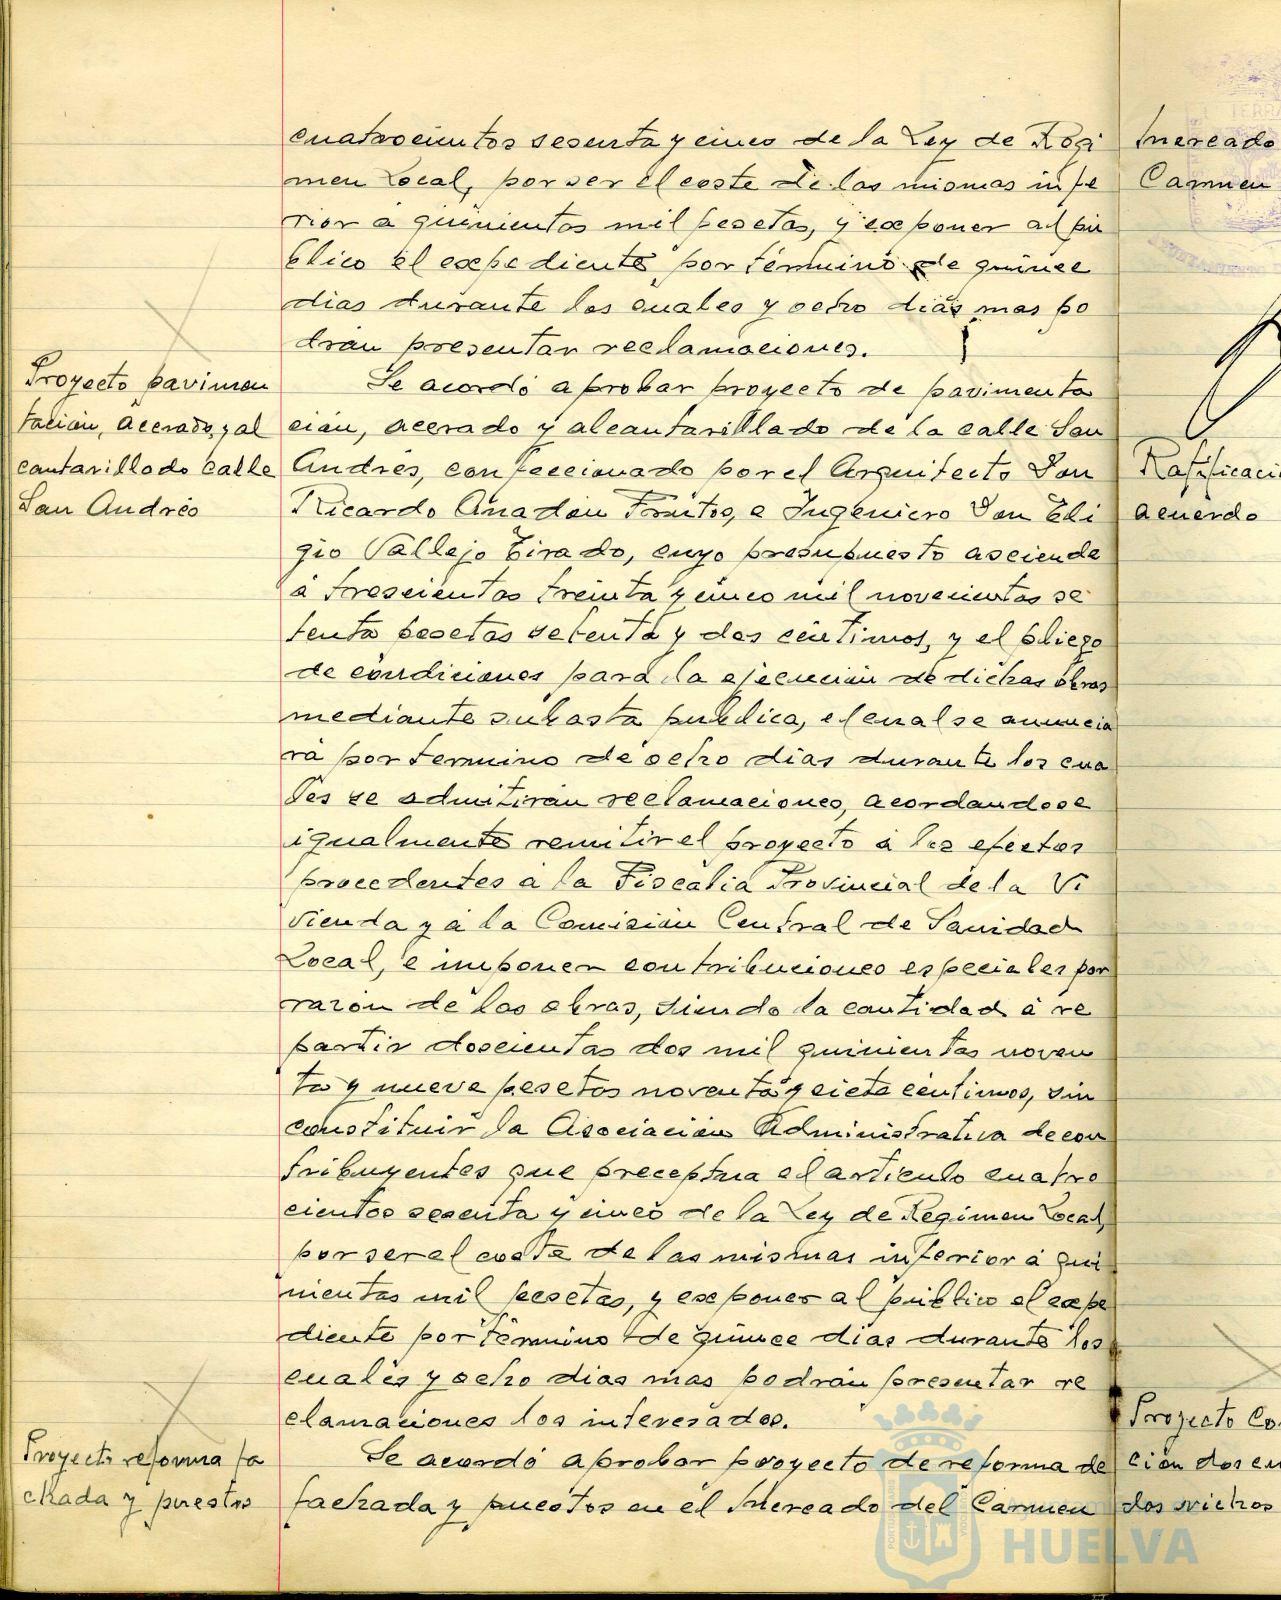 cuatrocientos sesenta y cinco de la Ley de Régi
men Local, por ser el coste de las mismas infe
rior á quinientas mil pesetas, y exponer al pú
blico el expediente por término de quince
dias durante los cuales y ocho dias mas po
drán presentar reclamaciones.
Proyecto pavimen
tación, acerado, y al
cantarillado calle
San Andrés
Se acordó aprobar proyecto de pavimenta
ción, acerado y alcantarillado de la calle San
Andrés, confeccionado por el Arquitecto Don
Ricardo Anadón Frutos, e Ingeniero Don Eli
gio Vallejo Tirado, cuyo presupuesto asciende
á trescientas treinta y cinco mil novecientas se
tenta pesetas setenta y dos céntimos, y el pliego
de condiciones para la ejecución de dichas obras
mediante subasta pública, el cual se anuncia
rá por termino de ocho dias durante los cua
les se admitirán reclamaciones, acordandose
igualmente remitir el proyecto á los efectos
procedentes á la Fiscalia Provincial de la Vi
vienda y á la Comisión Central de Sanidad
Local, é imponer contribuciones especiales por
razón de las obras, siendo la cantidad á re
partir doscientas dos mil quinientas noven
ta y nueve pesetas noventa y siete céntimos, sin
constituir la Asociación Administrativa de con
tribuyentes que preceptua el articulo cuatro
cientos sesenta y cinco de la Ley de Regimen Local,
por ser el coste de las mismas inferior á qui
nientas mil pesetas, y exponer al público el expe
diente por término de quince dias durante los
cuales y ocho dias mas podrán presentar re
clamaciones los interesados.
Proyecto reforma fa
chada y puestos
Se acordó aprobar proyecto de reforma de
fachada y puestos en el Mercado del Carmen
Mercado
Carmen
Ratificaci
acuerdo
Proyecto Co
ción dos en
dos nichos
HUELVA